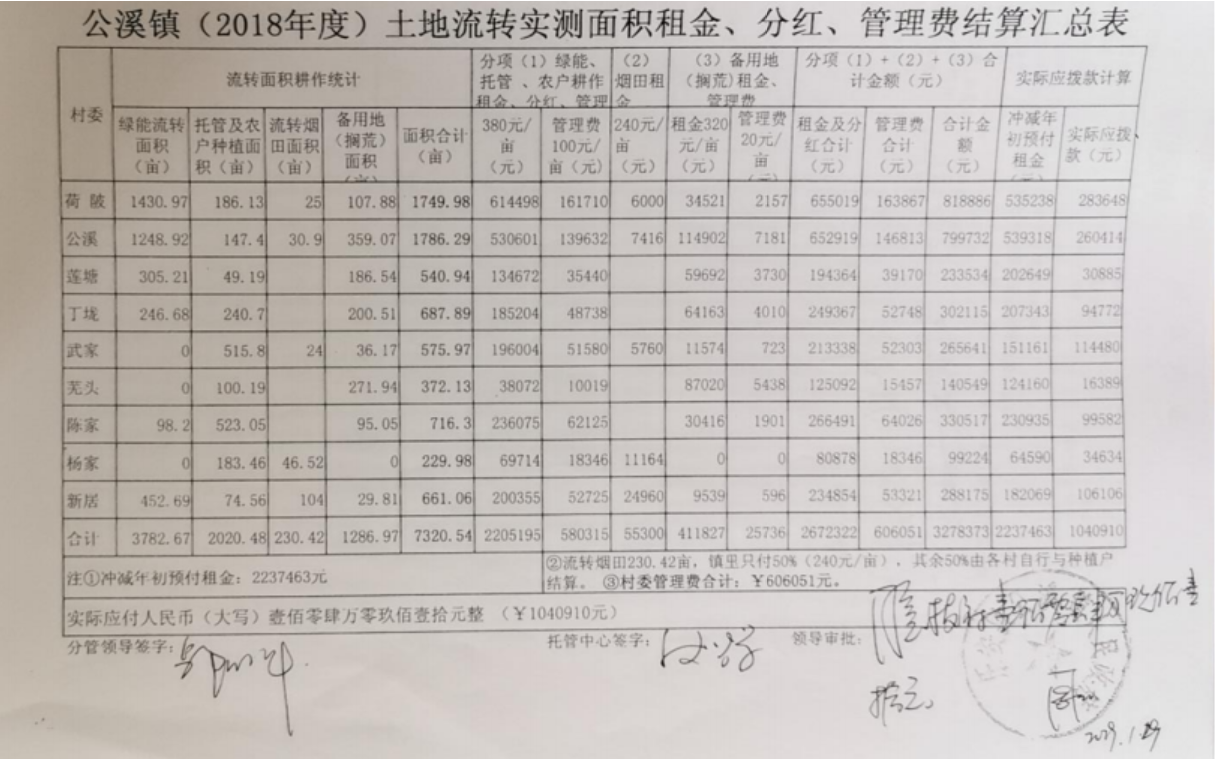 公溪镇（2018年度）土地流转实测面积租金、分红、管理费结算汇总表
村委 流转面积耕作统计 分项（1）绿能、托管、农户耕作租金、分红、管理 （2）烟田租金 （3）备用地（搁荒）租金、管理费 分项（1）+（2）+（3）合计金额（元） 实际应拨款计算
绿能流转面积（亩） 托管及农户种植面积（亩） 流转烟田面积（亩） 备用地（搁荒）面积 面积合计（亩） 380元/亩（元） 管理费100元/亩（元） 240元/亩（元） 租金320元/亩（元） 管理费20元/亩 租金及分红合计（元） 管理费合计（元） 合计金额（元） 冲减年初预付租金 实际应拨款（元）
荷陂 1430.97 186.13 25 107.88 1749.98 614498 161710 6000 34521 2157 655019 163867 818886 535238 283648
公溪 1248.92 147.4 30.9 359.07 1786.29 530601 139632 7416 114902 7181 652919 146813 799732 539318 260414
莲塘 305.21 49.19 186.54 540.94 134672 35440 59692 3730 194364 39170 233534 202649 30885
丁垅 246.68 240.7 200.51 687.89 185204 48738 64163 4010 249367 52748 302115 207343 94772
武家 0 515.8 24 36.17 575.97 196004 51580 5760 11574 723 213338 52303 265641 151161 114480
芫头 0 100.19 271.94 372.13 38072 10019 87020 5438 125092 15457 140549 124160 16389
陈家 98.2 523.05 95.05 716.3 236075 62125 30416 1901 266491 64026 330517 230935 99582
杨家 0 183.46 46.52 0 229.98 69714 18346 11164 0 0 80878 18346 99224 64590 34634
新居 452.69 74.56 104 29.81 661.06 200355 52725 24960 9539 596 234854 53321 288175 182069 106106
合计 3782.67 2020.48 230.42 1286.97 7320.54 2205195 580315 55300 411827 25736 2672322 606051 3278373 2237463 1040910
注①冲减年初预付租金：2237463元
②流转烟田230.42亩，镇里只付50%（240元/亩），其余50%由各村自行与种植户
结算。 ③村委管理费合计：￥606051元。
实际应付人民币（大写）壹佰零肆万零玖佰壹拾元整 （￥1040910元）
分管领导签字： 托管中心签字： 领导审批：
拾元